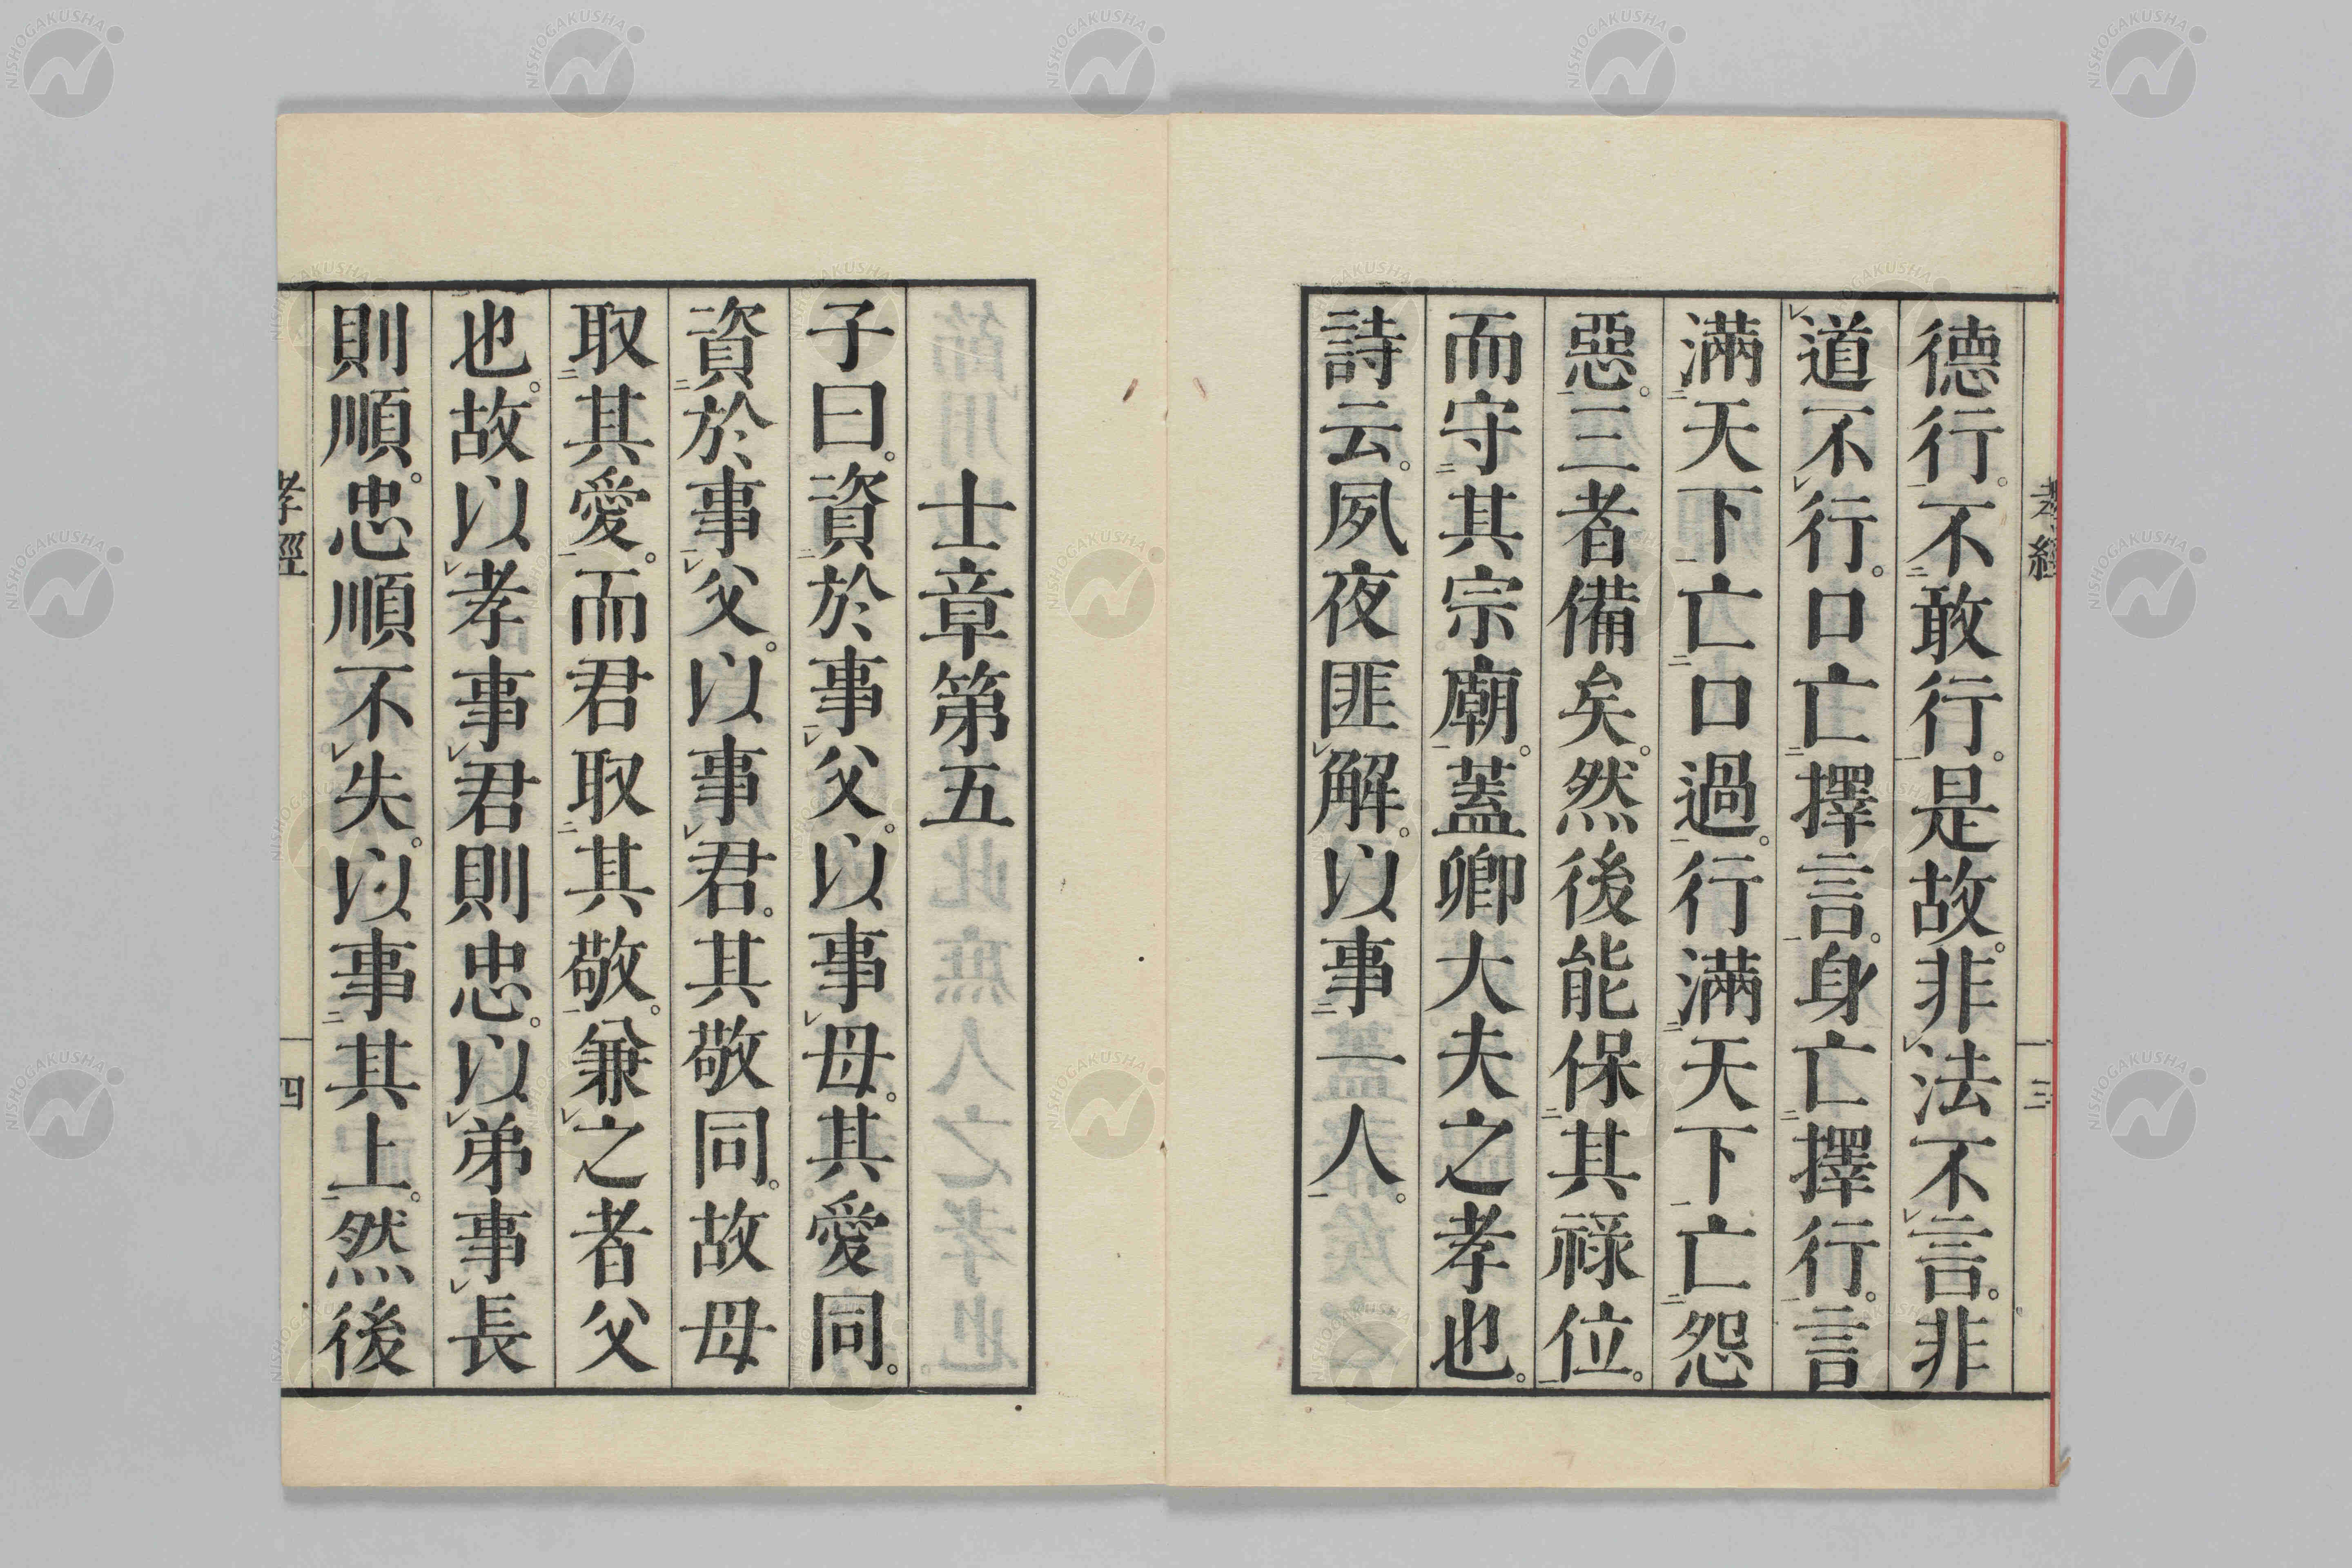 德行。不敢行。是故。非法不言。非
道不行。口亡擇言。身亡擇行。言
滿天下亡口過。行滿天下亡怨
惡。三者備矣。然後能保其祿位。
而守其宗廟。蓋卿大夫之孝也。
詩云。夙夜匪解。以事一人。
三
士章第五
子曰。資於事父。以事母。其愛同。
資於事父。以事君。其敬同。故母
取其愛。而君取其敬。兼之者父
也。故以孝事君則忠。以弟事長
則順。忠順不失。以事其上。然後
孝經
四
NISHOGAKUSHA